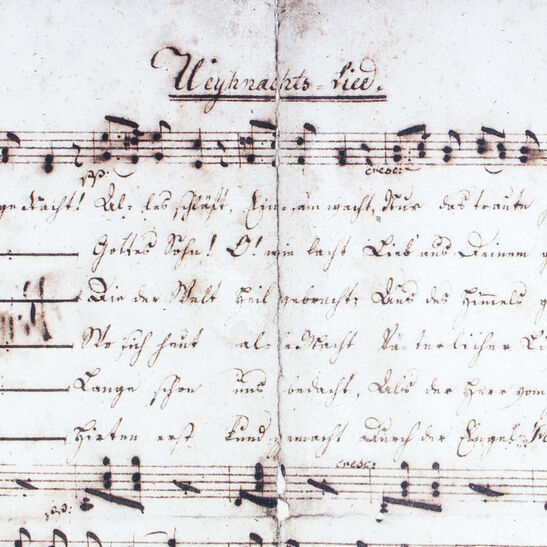 Weyhnachts-Lied.
pp. cresc:
ge Nacht! Al-les schläft, Einsam wacht, Nur das traute
Gottes Sohn! O! wie lacht Lieb aus Deinem
Die der Welt Heil gebracht; Aus des Himmels
Wo sich heut alle Macht Väterlicher
Lange schon uns bedacht, Als der Herr vom
Hirten erst kund gemacht Durch der Engel
cresc:
pp.